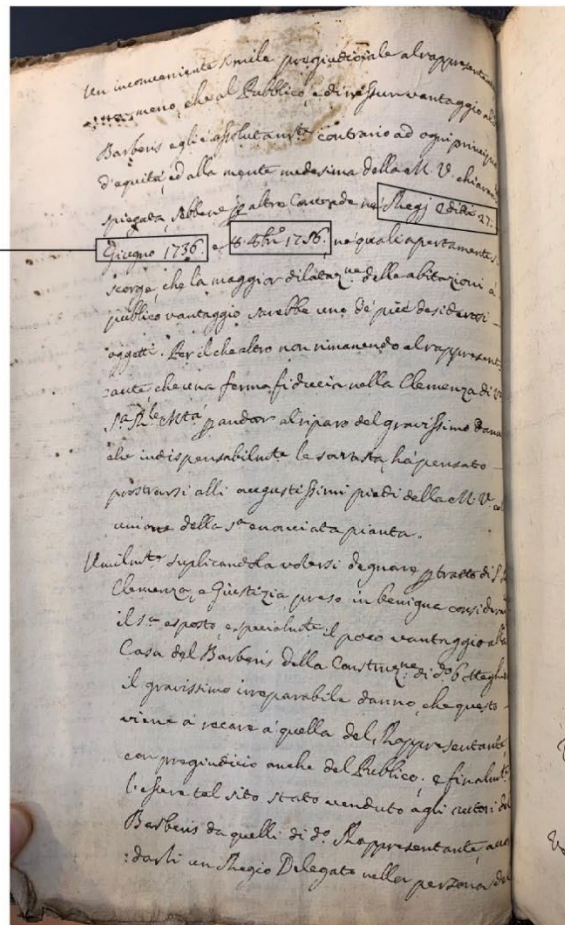 Un inconveniente simile pregiudiciale al rappresentante
meno, che al Publico, e di nissun vantaggio al
Barberis egli è assolutam.te contrario ad ogni principio
d'equità, ed alla mente medesima della M. V. chiaram
spiegata, sebbene p altro Contrade ne Regj Editti 27.
Giugno 1736. e 8. 8bre 1756. ne quali apertamente si
scorge, che la maggior dilataz.ne delle abitazioni a
publico vantaggio sarebbe uno de più desiderosi
oggetti. Per il che altro non rimanendo al rappresent
ante, che una ferma fiducia nella Clemenza di V.
S.a R.le M.tà p andar al riparo del gravissimo danno
che indispensabilm.te le sovrasta, hà pensato
prostrarsi alli augustissimi piedi della M. V. col
unione della s.a enonciata pianta.
Umilm.te suplicandola volersi degnare p tratto di S.
Clemenza, e Giustizia preso in benigna considerat
il s.a esposto, e specialm.te il poco vantaggio alla
Casa del Barberis della Costruz.ne di d.o 6 Megh
il gravissimo irreparabile danno, che questo
viene à recare à quella del Rappresentante,
con pregiudicio anche del Publico; e finalm.te
l'essere tal sito stato venduto agli autori del
Barberis da quelli di d.o Rappresentante, acco
:darli un Regio Delegato nella persona del